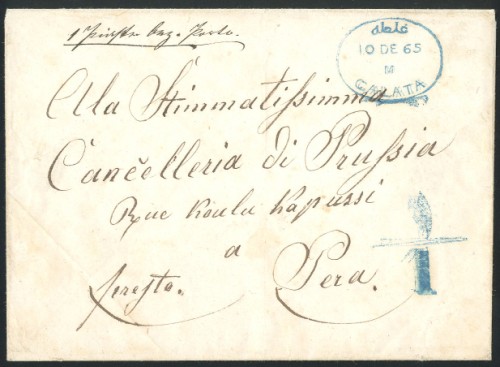 1 Piastre
غلطه
10 DE 65
M
GALATA
Alla Stimmatissimma
Cancelleria di Prussia
Rue Koulu Kapussi
a
presto. Pera.
1